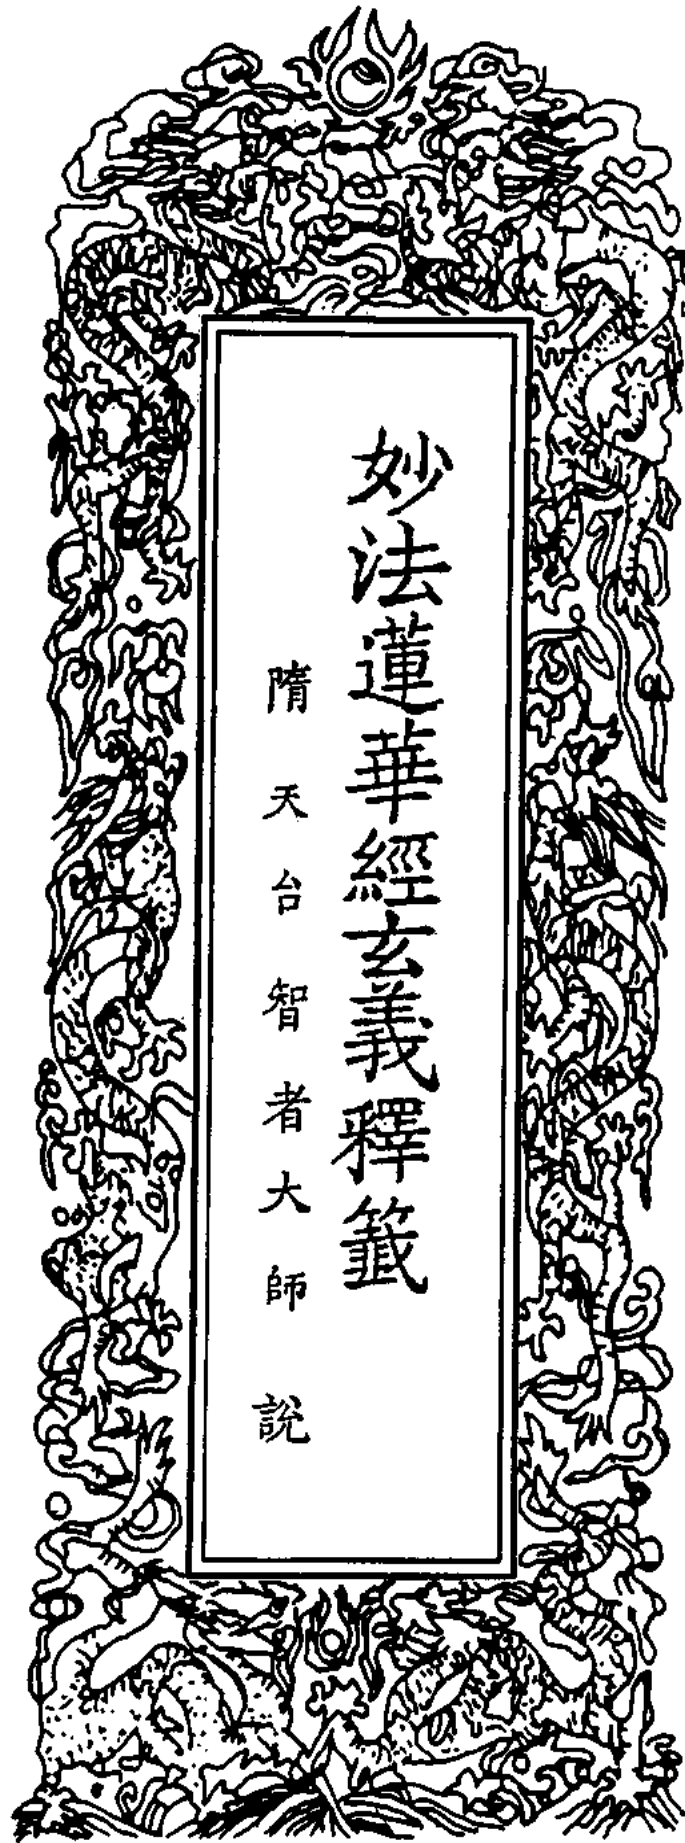 妙法蓮華經玄義釋籤
隋 天台智者大師 說